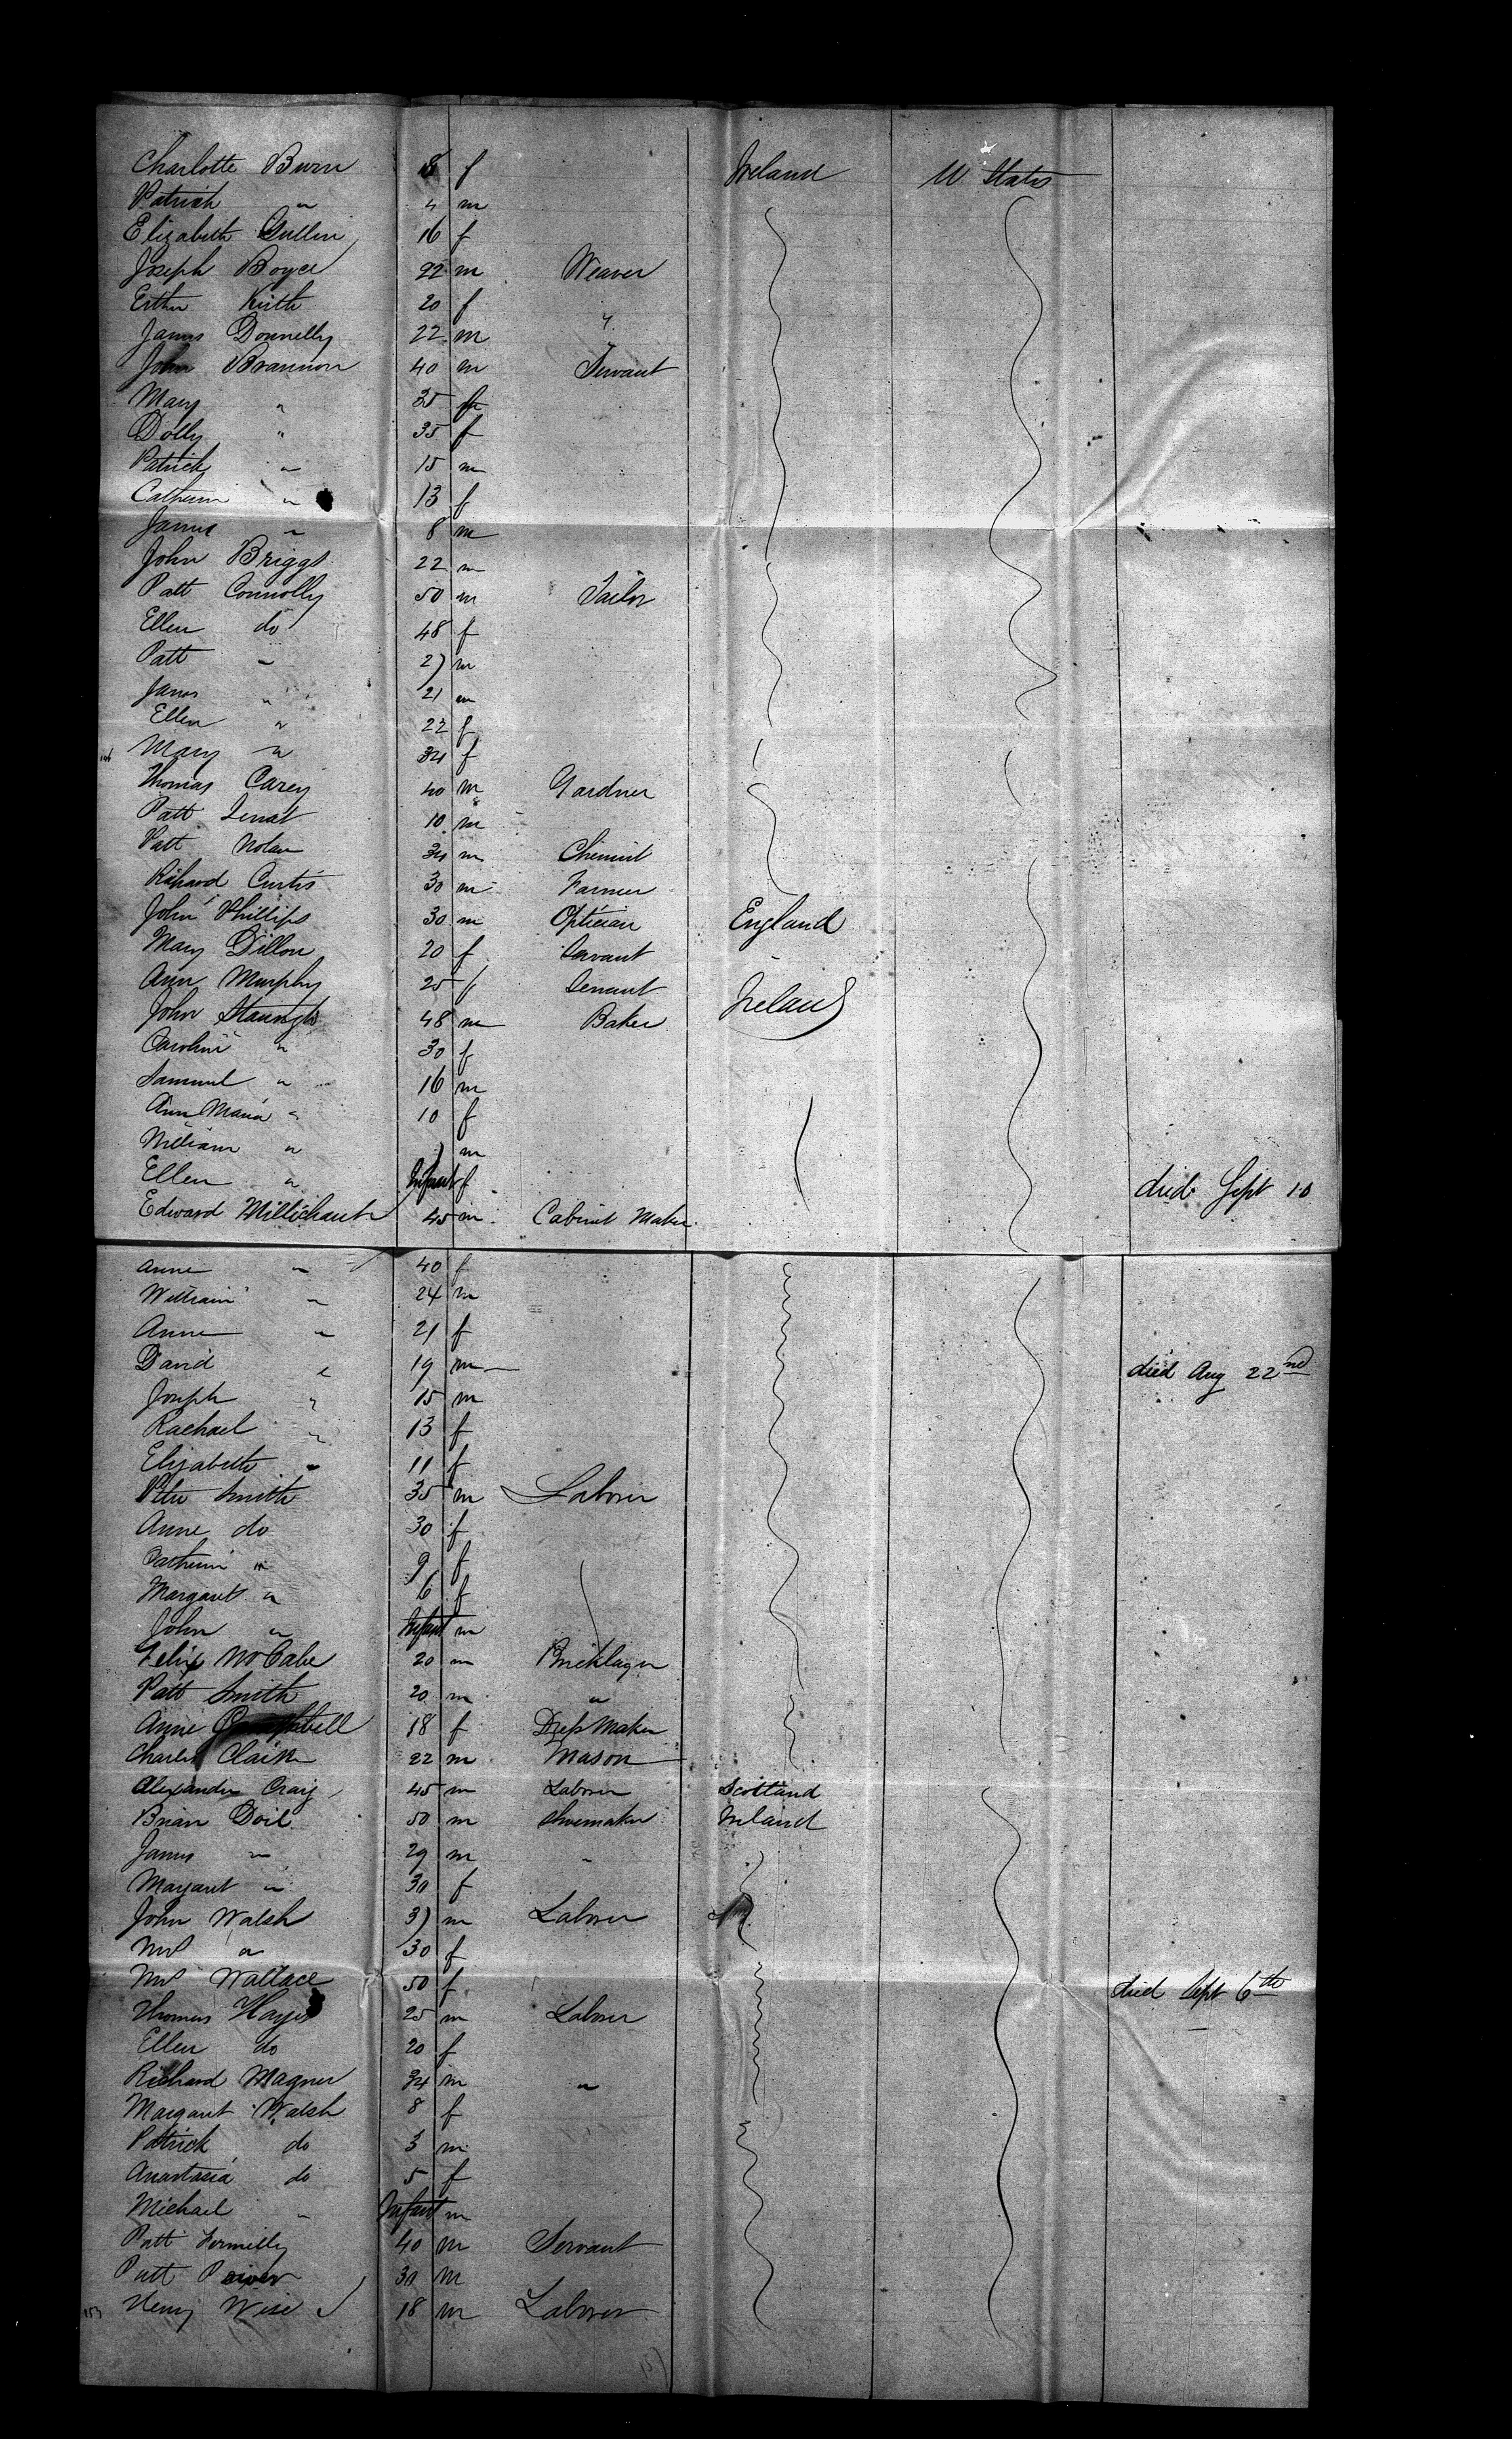 Charlotte Burn 8 f Ireland U States
Patrick " 4 m
Elizabeth Cullin 16 f
Joseph Boyce 22 m Weaver
Esther Keith 20 f
James Donnelly 22 m "
John Brannon 40 m Servant
Mary " 35 f
Dolly " 35 f
Patrick " 15 m
Catherin " 13 f
James " 8 m
John Briggs 22 m
Patt Connolly 50 m Tailor
Ellen do 48 f
Patt " 27 m
James " 21 m
Ellen " 22 f
Mary " 34 f
Thomas Carey 40 m Gardner
Patt 10 m
Patt Nolan 34 m Chemist
Richard Curtis 30 m Farmer
John Phillips 30 m Optician England
Mary Dillon 20 f Servant
Ann Murphy 25 f Servant Ireland
John 48 m Baker
Caroline " 30 f
Samuel " 16 m
Ann Maria " 10 f
William " 7 m
Ellen " Infant f died Sept 10
Edward Millichant 45 m Cabinet Maker
Anne " 40 f
William " 24 m
Anne " 21 f
David " 19 m died Aug 22nd
Joseph " 15 m
Rachael " 13 f
Elizabeth " 11 f
Peter Smith 35 m Laborer
Anne do 30 f
Catherin " 9 f
Margaret " 6 f
John " Infant m
Felix McCabe 20 m Bricklayer
Patt Smith 20 m "
Anne Campbell 18 f Dress Maker
Charles 22 m Mason
Alexander Craig 45 m Laborer Scotland
Brian Doil 50 m Shoemaker Ireland
James " 29 m "
Margaret " 30 f
John Walsh 37 m Laborer
Mrs " 30 f
Mrs Wallace 50 f died Sept 6th
Thomas Hayes 25 m Laborer
Ellen do 20 f
Richard Magner 34 m "
Margaret Walsh 8 f
Patrick do 3 m
Anastasia do 5 f
Michael " Infant m
Patt 40 m Servant
Patt 30 m
Henry Wise 18 m Laborer